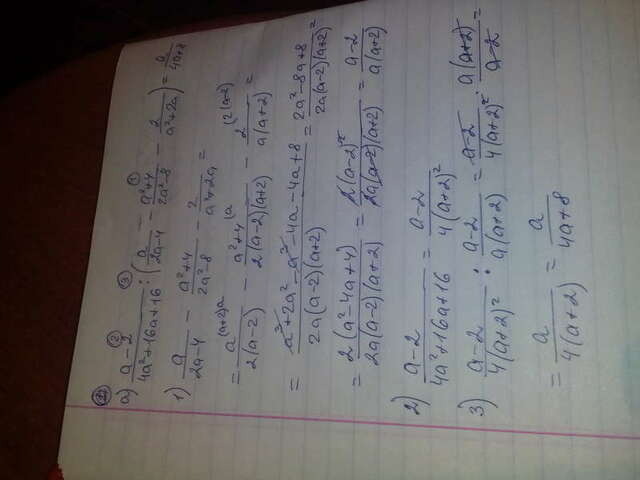 а) (a-2)/(4a²+16a+16) : (a/(2a-4) - (a²+4)/(2a²-8) - 2/(a²+2a)) = a/(4a+8)
1) a/(2a-4) - (a²+4)/(2a²-8) - 2/(a²+2a) =
= a/(2(a-2)) - (a²+4)/(2(a-2)(a+2)) - 2/(a(a+2)) =
= (a³+2a²-a³-4a-4a+8)/(2a(a-2)(a+2)) = (2a²-8a+8)/(2a(a-2)(a+2)) =
= 2(a²-4a+4)/(2a(a-2)(a+2)) = 2(a-2)²/(2a(a-2)(a+2)) = (a-2)/(a(a+2))
2) (a-2)/(4a²+16a+16) = (a-2)/(4(a+2)²)
3) (a-2)/(4(a+2)²) : (a-2)/(a(a+2)) = (a-2)/(4(a+2)²) · a(a+2)/(a-2) =
= a/(4(a+2)) = a/(4a+8)